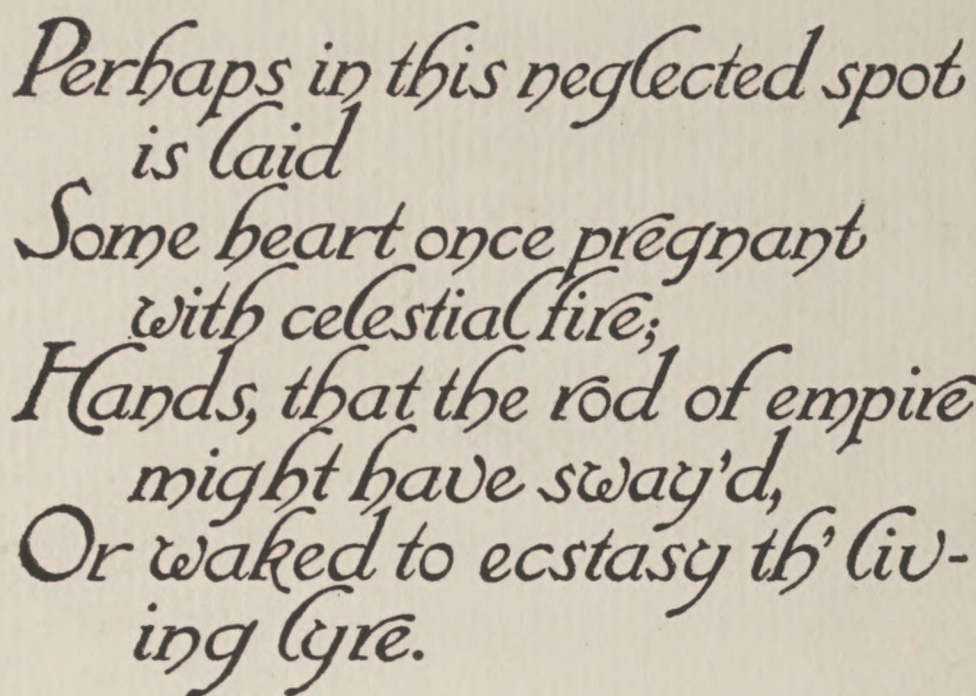 Perhaps in this neglected spot
is laid
Some heart once pregnant
with celestial fire;
Hands, that the rod of empire
might have sway'd,
Or waked to ecstasy th' liv-
ing lyre.